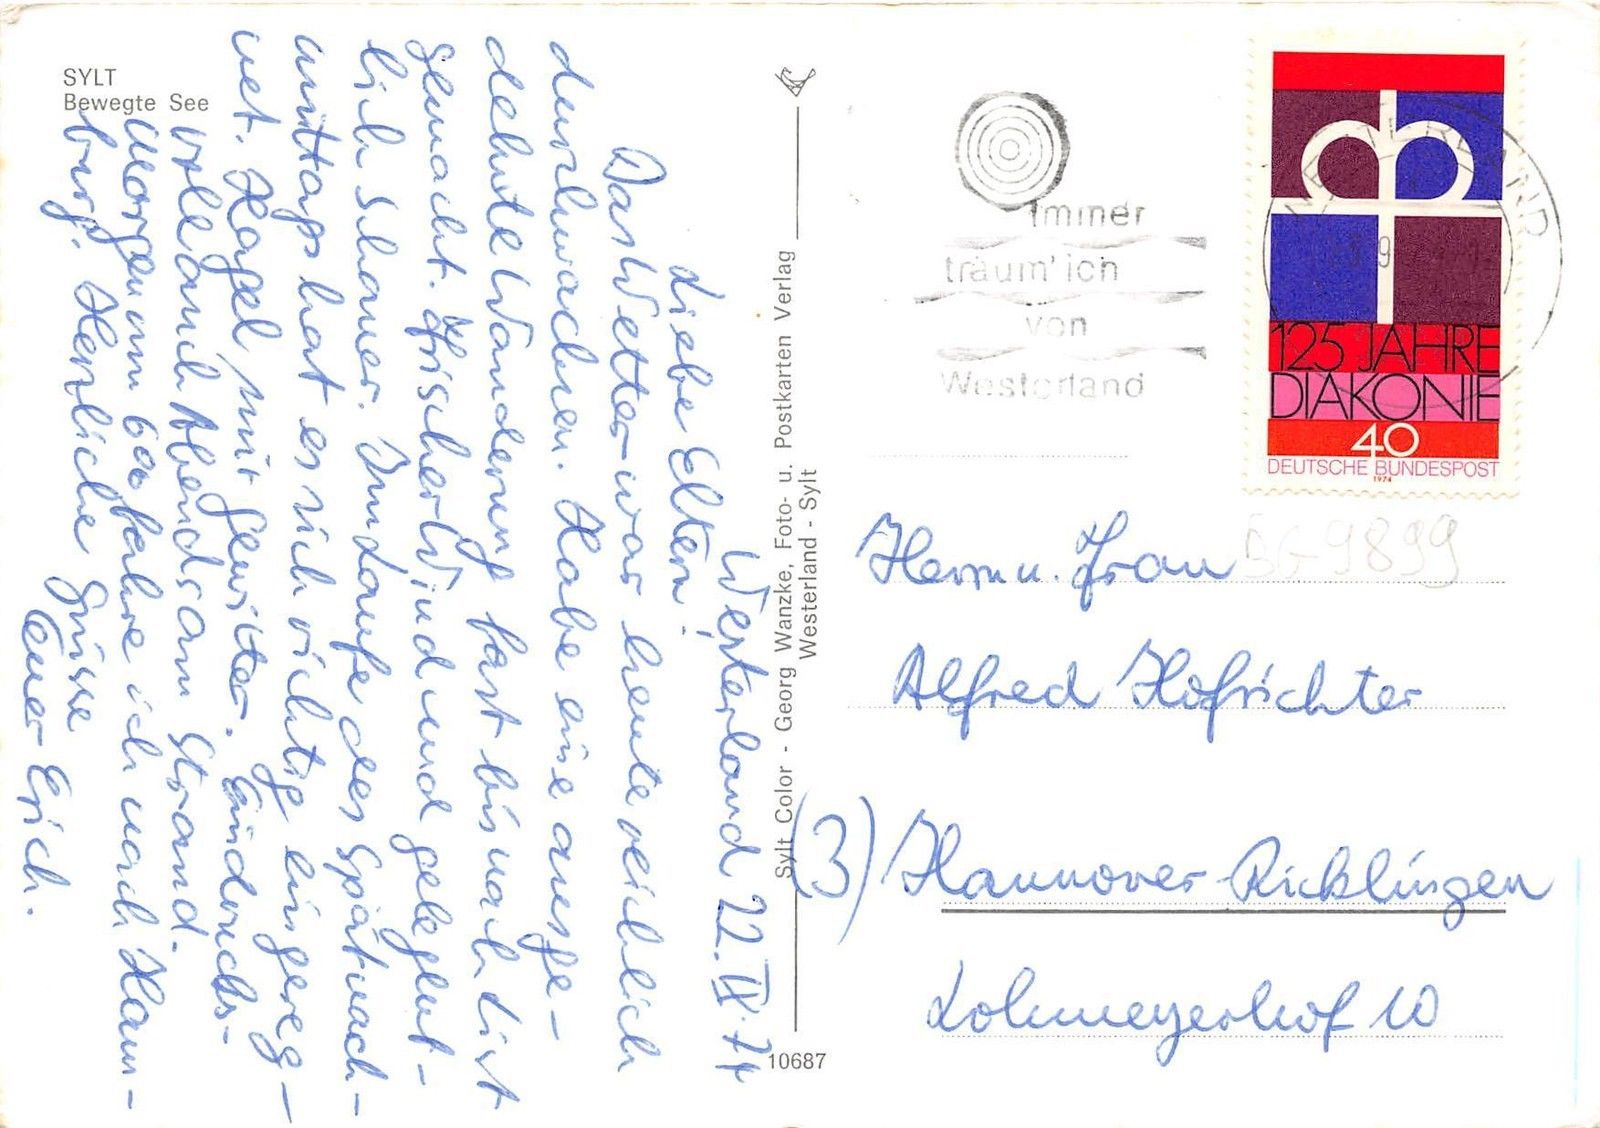 SYLT
Bewegte See
Westerland 22.IX.74
Liebe Eltern!
Das Wetter war heute reichlich
durchwachsen. Habe eine ausge-
dehnte Wanderung fast bis nach List
gemacht. Frischer Wind und gelegent-
lich Schauer. Im Laufe des Spätnach-
mittags hat es sich richtig eingereg-
net. Hagel mit Gewitter. Eindrucks-
voll auch Abends am Strand.
Morgen um 6°° fahre ich nach Ham-
burg. Herzliche Grüsse
Euer Erich.
Sylt Color - Georg Wanzke, Foto- u. Postkarten Verlag
Westerland - Sylt
10687
Immer
träum' ich
von
Westerland
WESTERLAND
125 JAHRE
DIAKONIE
40
DEUTSCHE BUNDESPOST
1974
BG9899
Herrn u. Frau
Alfred Hofrichter
(3) Hannover-Ricklingen
Lohmeyerhof 10